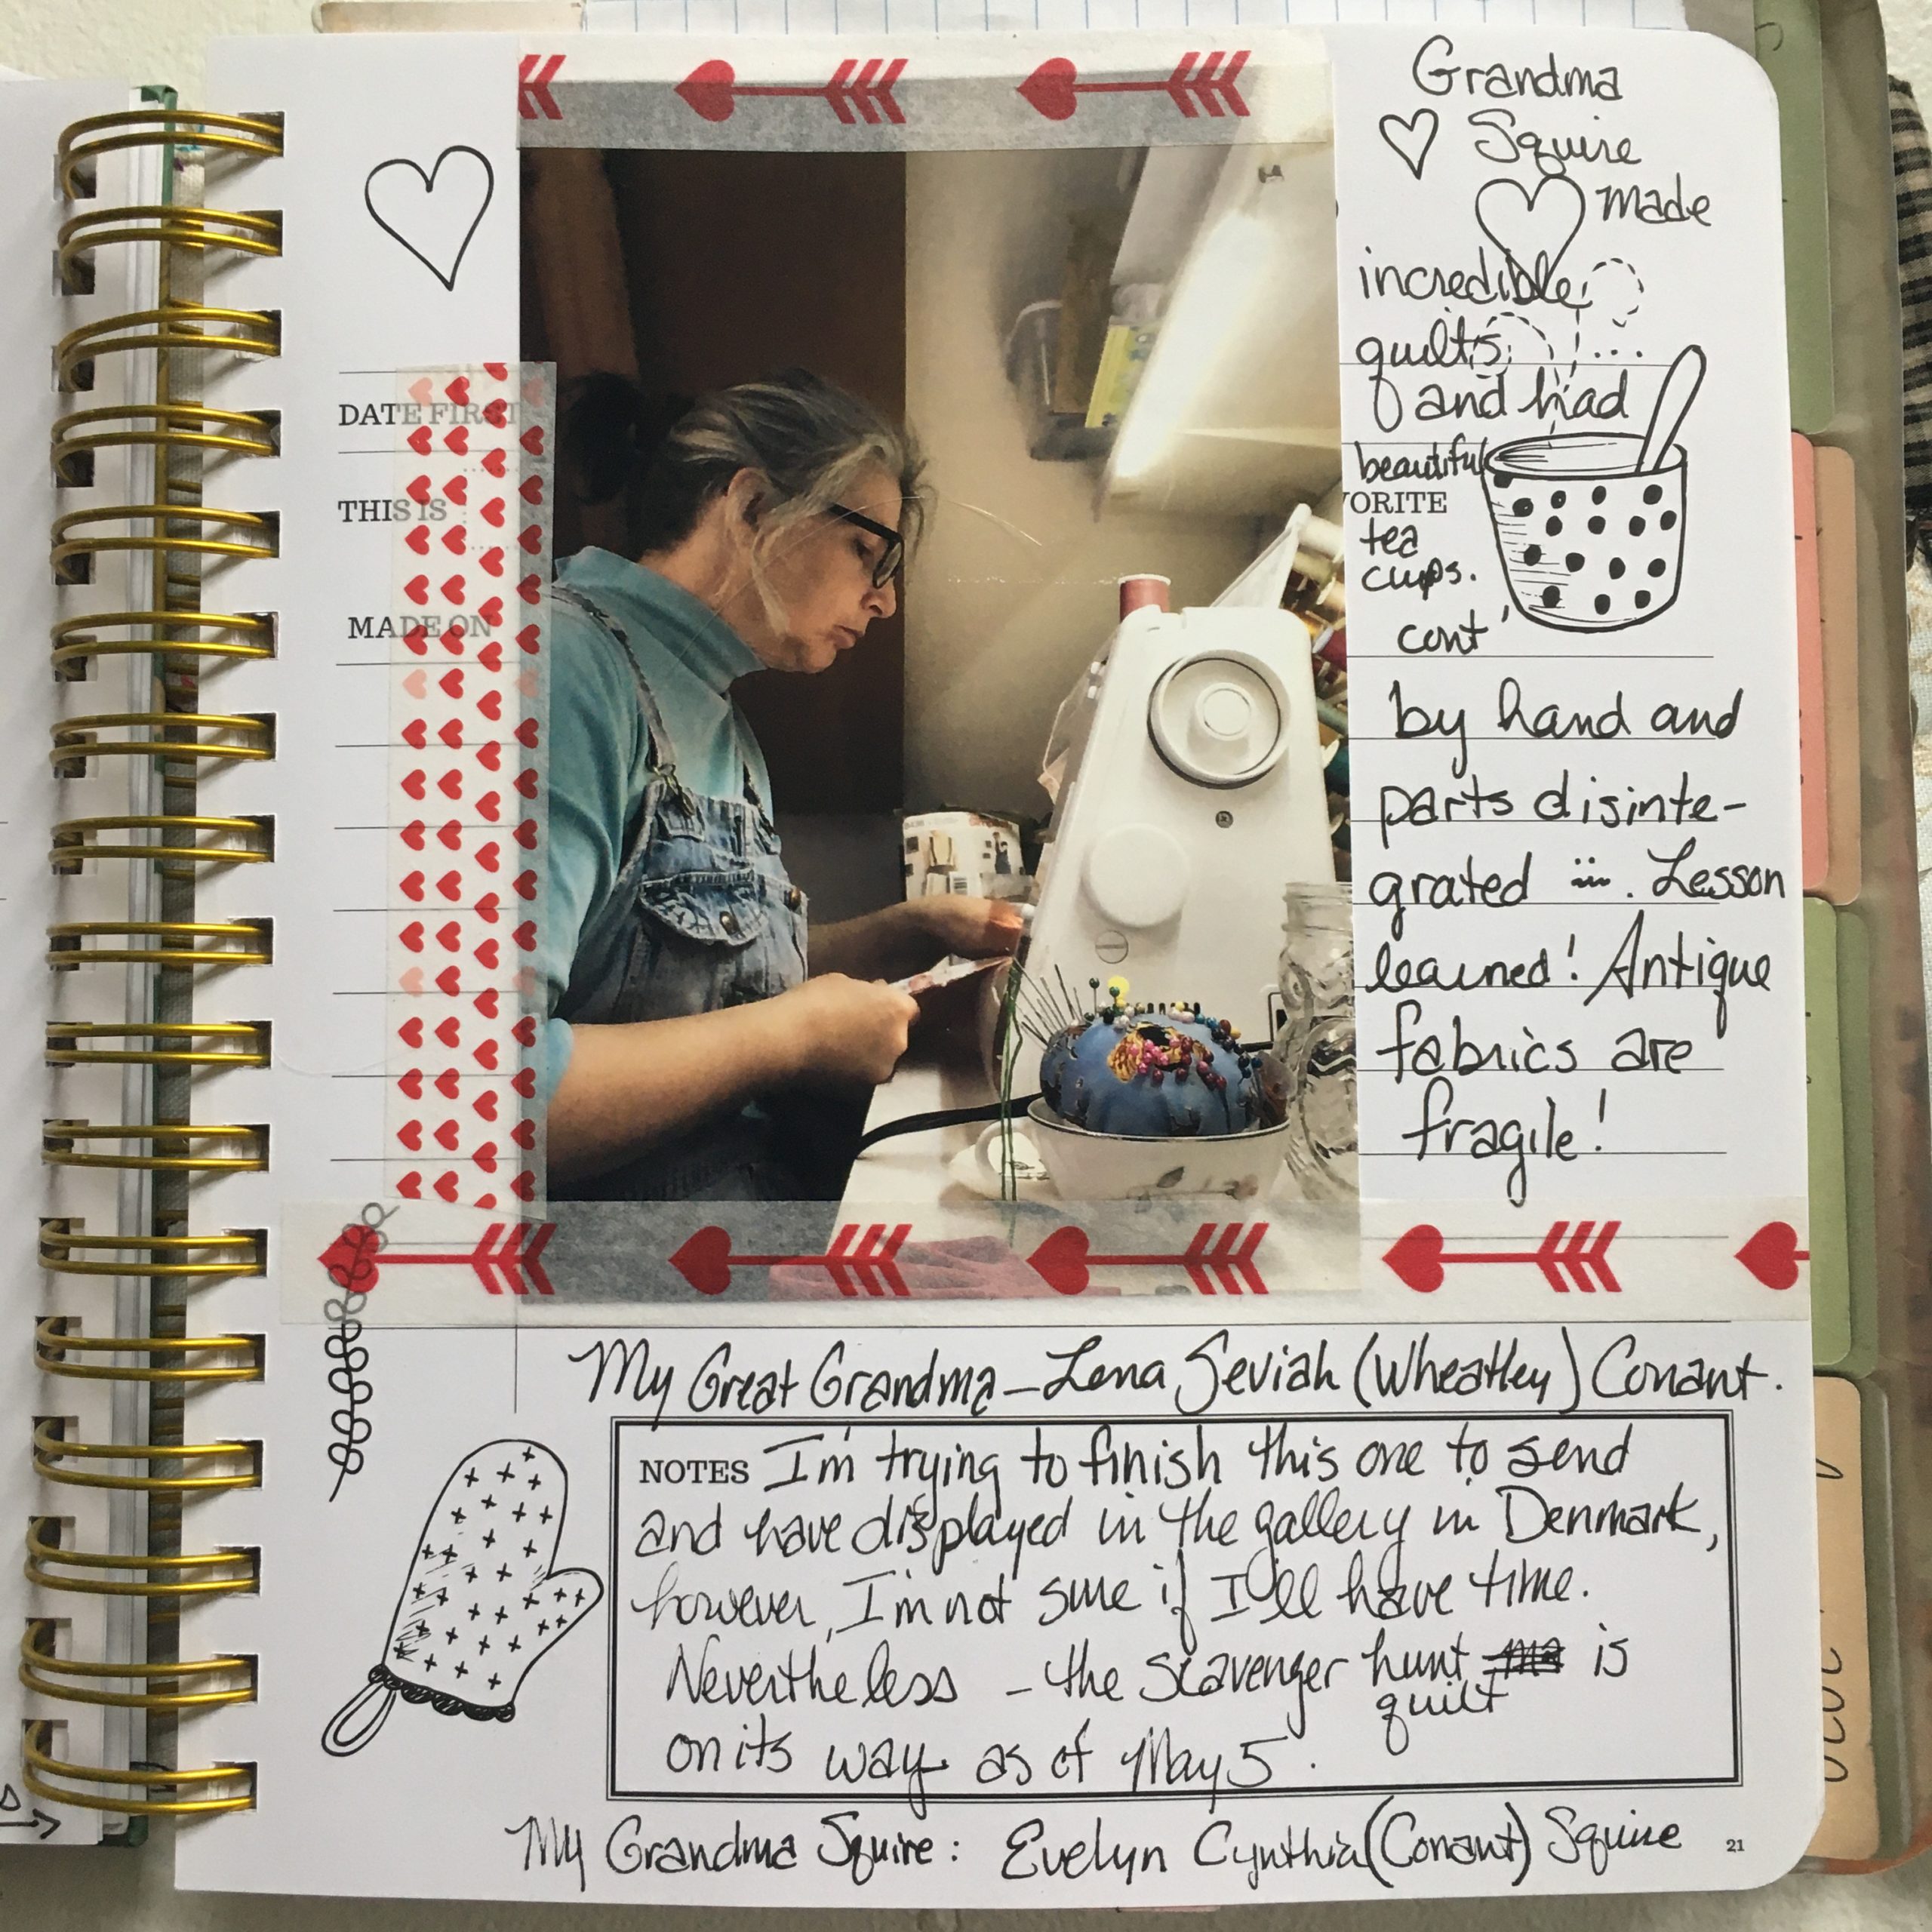 Grandma
Squire
made
incredible
quilts
and had
beautiful
ORITE
tea
cups.
cont'
DATE FIRST
THIS IS
MADE ON
by hand and
parts disinte-
grated . Lesson
learned! Antique
fabrics are
fragile!
My Great Grandma - Lena Seviah (Wheatley) Conant.
NOTES I'm trying to finish this one to send
and have displayed in the gallery in Denmark,
however, I'm not sure if I'll have time.
Nevertheless - the scavenger hunt is
quilt
on its way as of May 5.
My Grandma Squire: Evelyn Cynthia (Conant) Squire
21